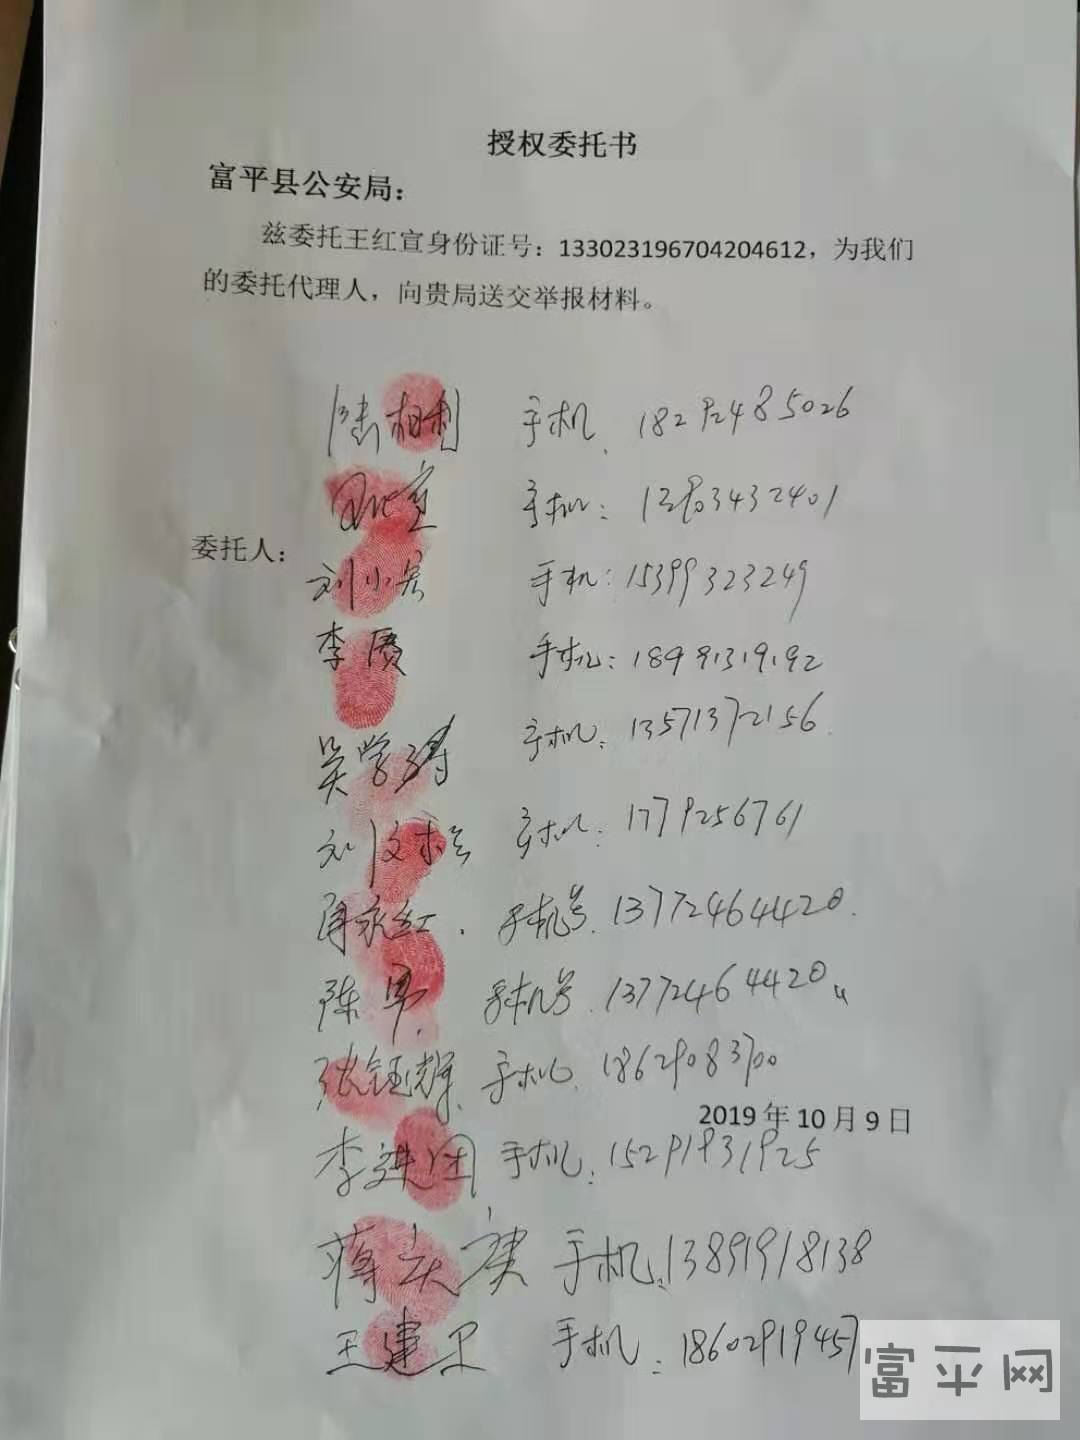 授权委托书
富平县公安局：
兹委托王红宣身份证号：133023196704204612，为我们
的委托代理人，向贵局送交举报材料。
陆相利 手机. 18292485026
手机： 432401
委托人：
刘小 手机：15399323249
李 手机：18991319192
吴学涛 手机：13571372156.
刘文 手机：1779256761
永红. 手机号. 13772464420.
陈军. 手机号. 13772464420
张钰辉. 手机. 18629083700
2019 年 10 月 9 日
李进团 手机：15291831925
蒋庆 手机：13891918138
王建卫 手机：18602919457
富平网